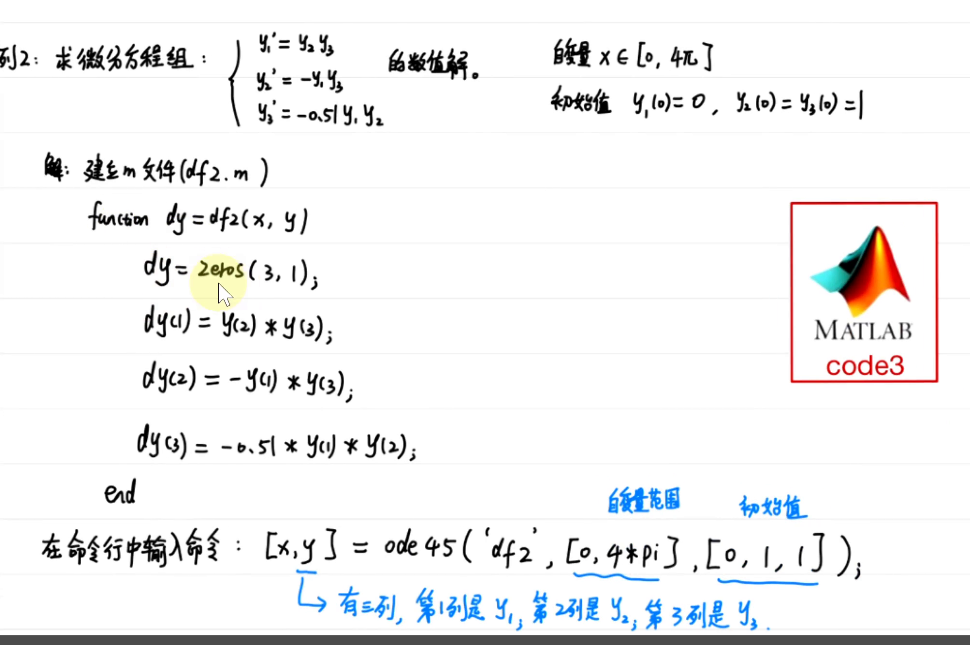 列2: 求微分方程组:
y₁' = y₂ y₃
y₂' = -y₁ y₃
y₃' = -0.51 y₁ y₂
的数值解。
自变量 x ∈ [0, 4π]
初始值 y₁(0) = 0, y₂(0) = y₃(0) = 1
解: 建立m文件(df2.m)
function dy = df2(x, y)
dy = zeros(3, 1);
dy(1) = y(2) * y(3);
dy(2) = -y(1) * y(3);
dy(3) = -0.51 * y(1) * y(2);
end
MATLAB
code3
自变量范围
初始值
在命令行中输入命令: [x,y] = ode45('df2', [0, 4*pi], [0, 1, 1]);
有三列, 第1列是 y₁, 第2列是 y₂, 第3列是 y₃.